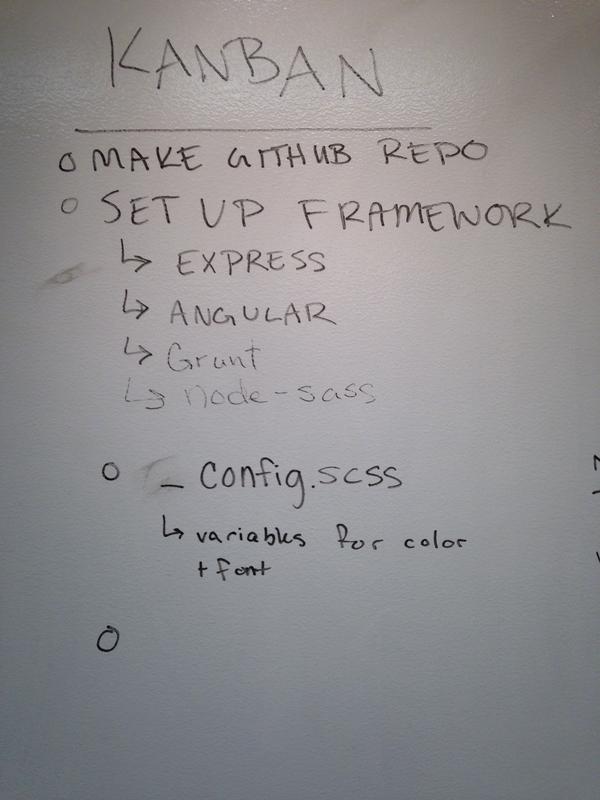 KANBAN
MAKE GITHUB REPO
SET UP FRAMEWORK
↳ EXPRESS
↳ ANGULAR
↳ Grunt
↳ node-sass
_config.scss
↳ variables for color
+ font